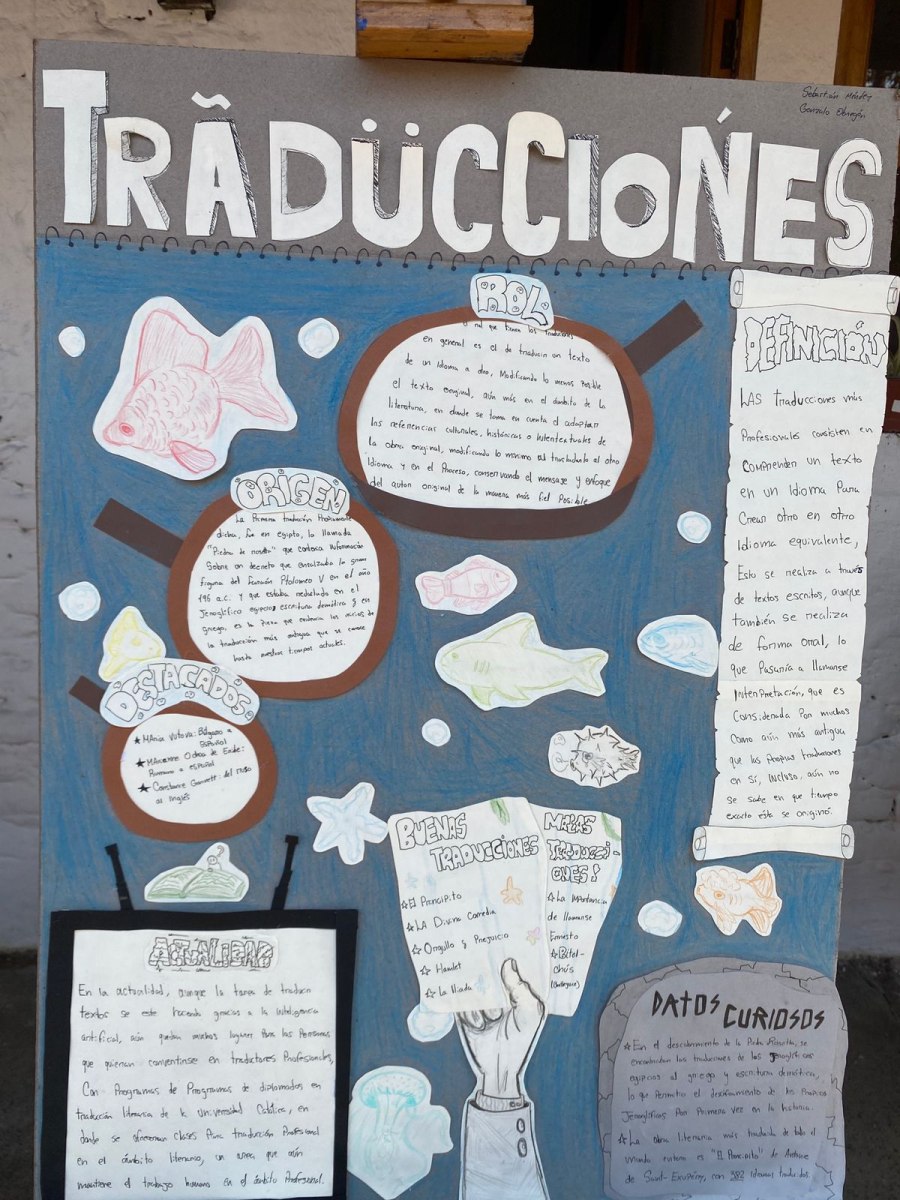 Sebastián Méndez
Gonzalo Obregón
TRÃDÜCCIOŃES
ROL
en general es el de traducir un texto
de un Idioma a otro, Modificando lo menos Posible
el texto original, aún más en el ámbito de la
literatura, en donde se toma en cuenta el adaptar
las referencias culturales, históricas o intertextuales de
la obra original, modificando lo mínimo al trasladarlo al otro
Idioma y en el Proceso, conservando el mensaje y enfoque
del autor original de la manera más fiel Posible
DEFINICIÓN
LAS Traducciones más
Profesionales consisten en
Comprender un texto
en un Idioma Para
Crear otro en otro
Idioma equivalente,
Esto se realiza a través
de textos escritos, aunque
también se realiza
de forma oral, lo
que Pasaría a llamarse
Interpretación, que es
Considerada Por muchos
Como aún más antigua
que las propias traducciones
en sí, Incluso, aún no
se sabe en que tiempo
exacto ésta se originó.
ORIGEN
La Primera traducción Propiamente
dicha, fue en egipto, la llamada
"Piedra de rosetta" que contenía Información
Sobre un decreto que ensalzaba la gran
figura del faraón Ptolomeo V en el año
196 a.C. y que estaba redactado en el
Jeroglífico egipcio, escritura demótica y en
griego, es la Pieza que evidencia los inicios de
la traducción más antigua que se conoce
hasta nuestros tiempos actuales.
DESTACADOS
★ MAria Vutova: Búlgaro a
ESPAñol
★ MAriANNE Ochoa de Eribe:
Rumano a español
★ Constance Garnett: del ruso
al Inglés
BUENAS
TRADUCCIONES
☆ El Principito
☆ LA Divina Comedia
☆ Orgullo y Prejuicio
☆ Hamlet
☆ La Iliada
MALAS
TRADUCCI-
ONES!
☆ La Importancia
de llamarse
Ernesto
☆ Bitel-
chús
ACTALIDAD
En la actualidad, aunque la tarea de traducir
textos se este haciendo gracias a la Inteligencia
artificial, aún quedan muchos lugares Para las Personas
que quieran convertirse en traductores Profesionales,
Con Programas de Programas de diplomados en
traducción literaria de la Universidad Católica, en
donde se ofrecen clases Para traducción Profesional
en el ámbito literario, un area que aún
mantiene el trabajo humano en el ámbito Profesional.
DATOS CURIOSOS
☆ En el descubrimiento de la Piedra Rosetta, se
encontraban las traducciones de los Jeroglíficos
egipcios al griego y escritura demótica,
lo que Permitió el desciframiento de los Propios
Jeroglíficos Por Primera vez en la historia.
☆ La obra literaria más traducida de todo el
mundo entero es "El Principito" de Antoine
de Saint-Exupéry, con 382 idiomas traducidos.